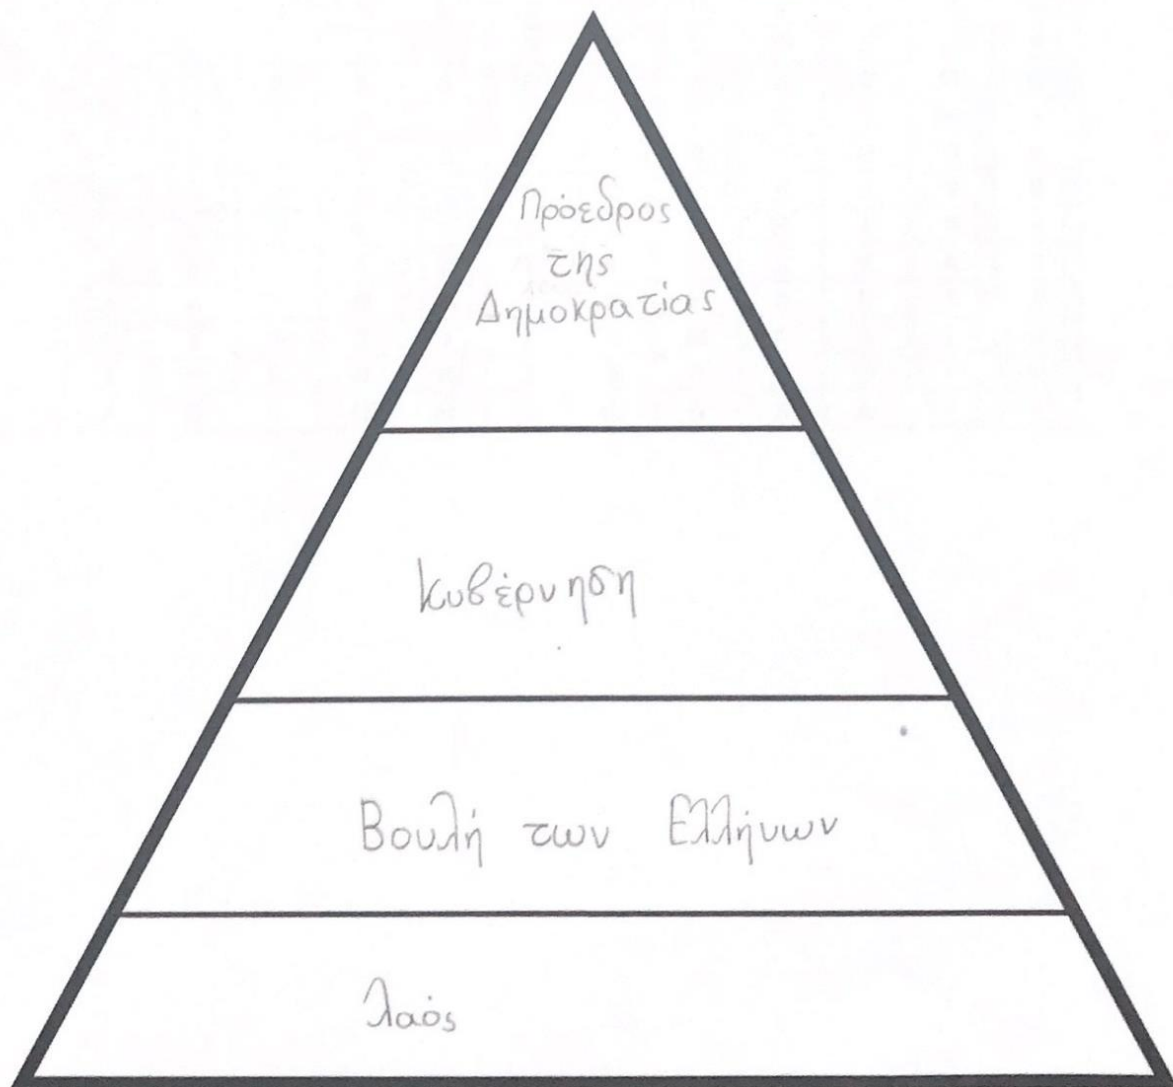 Πρόεδρος
της
Δημοκρατίας
Κυβέρνηση
Βουλή των Ελλήνων
λαός